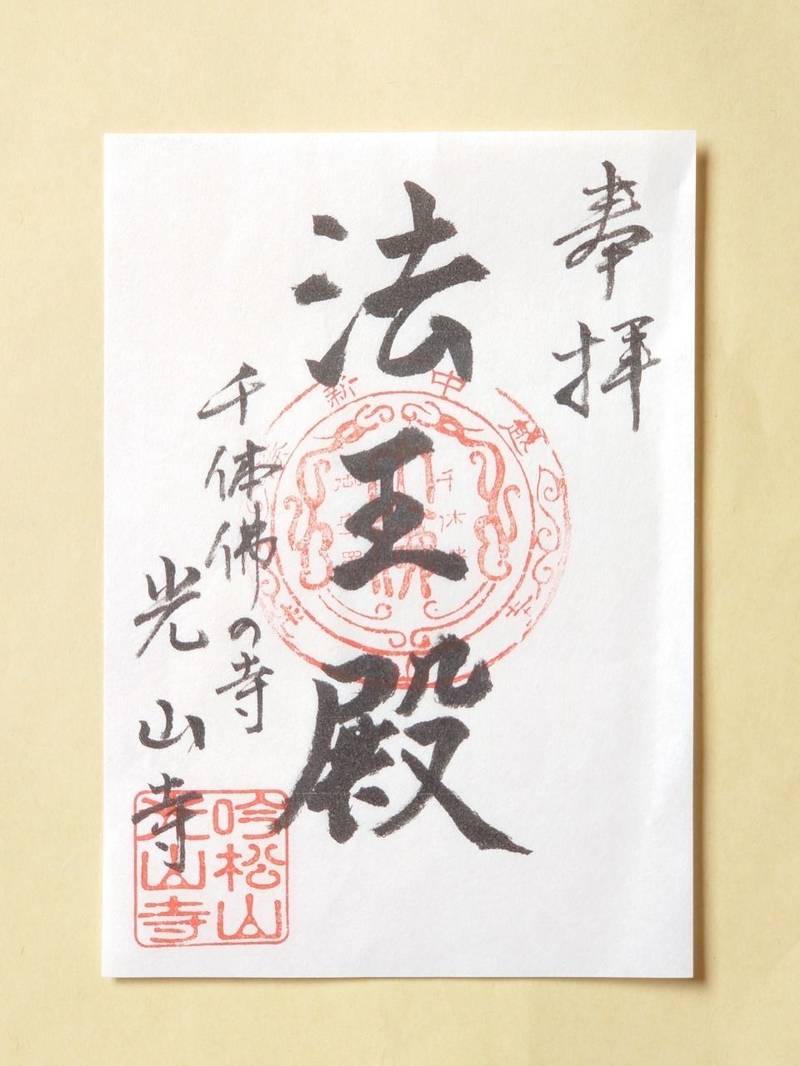 奉拝
法王殿
千体佛の寺
光山寺
吟松山
光山寺